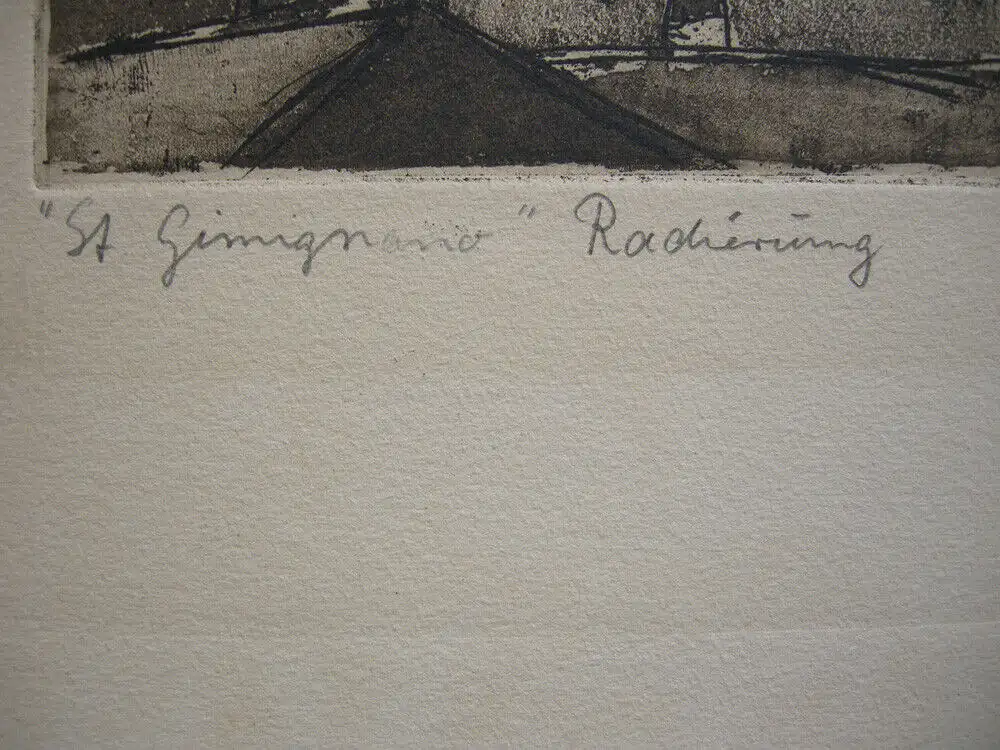 "St Gimignano" Radierung